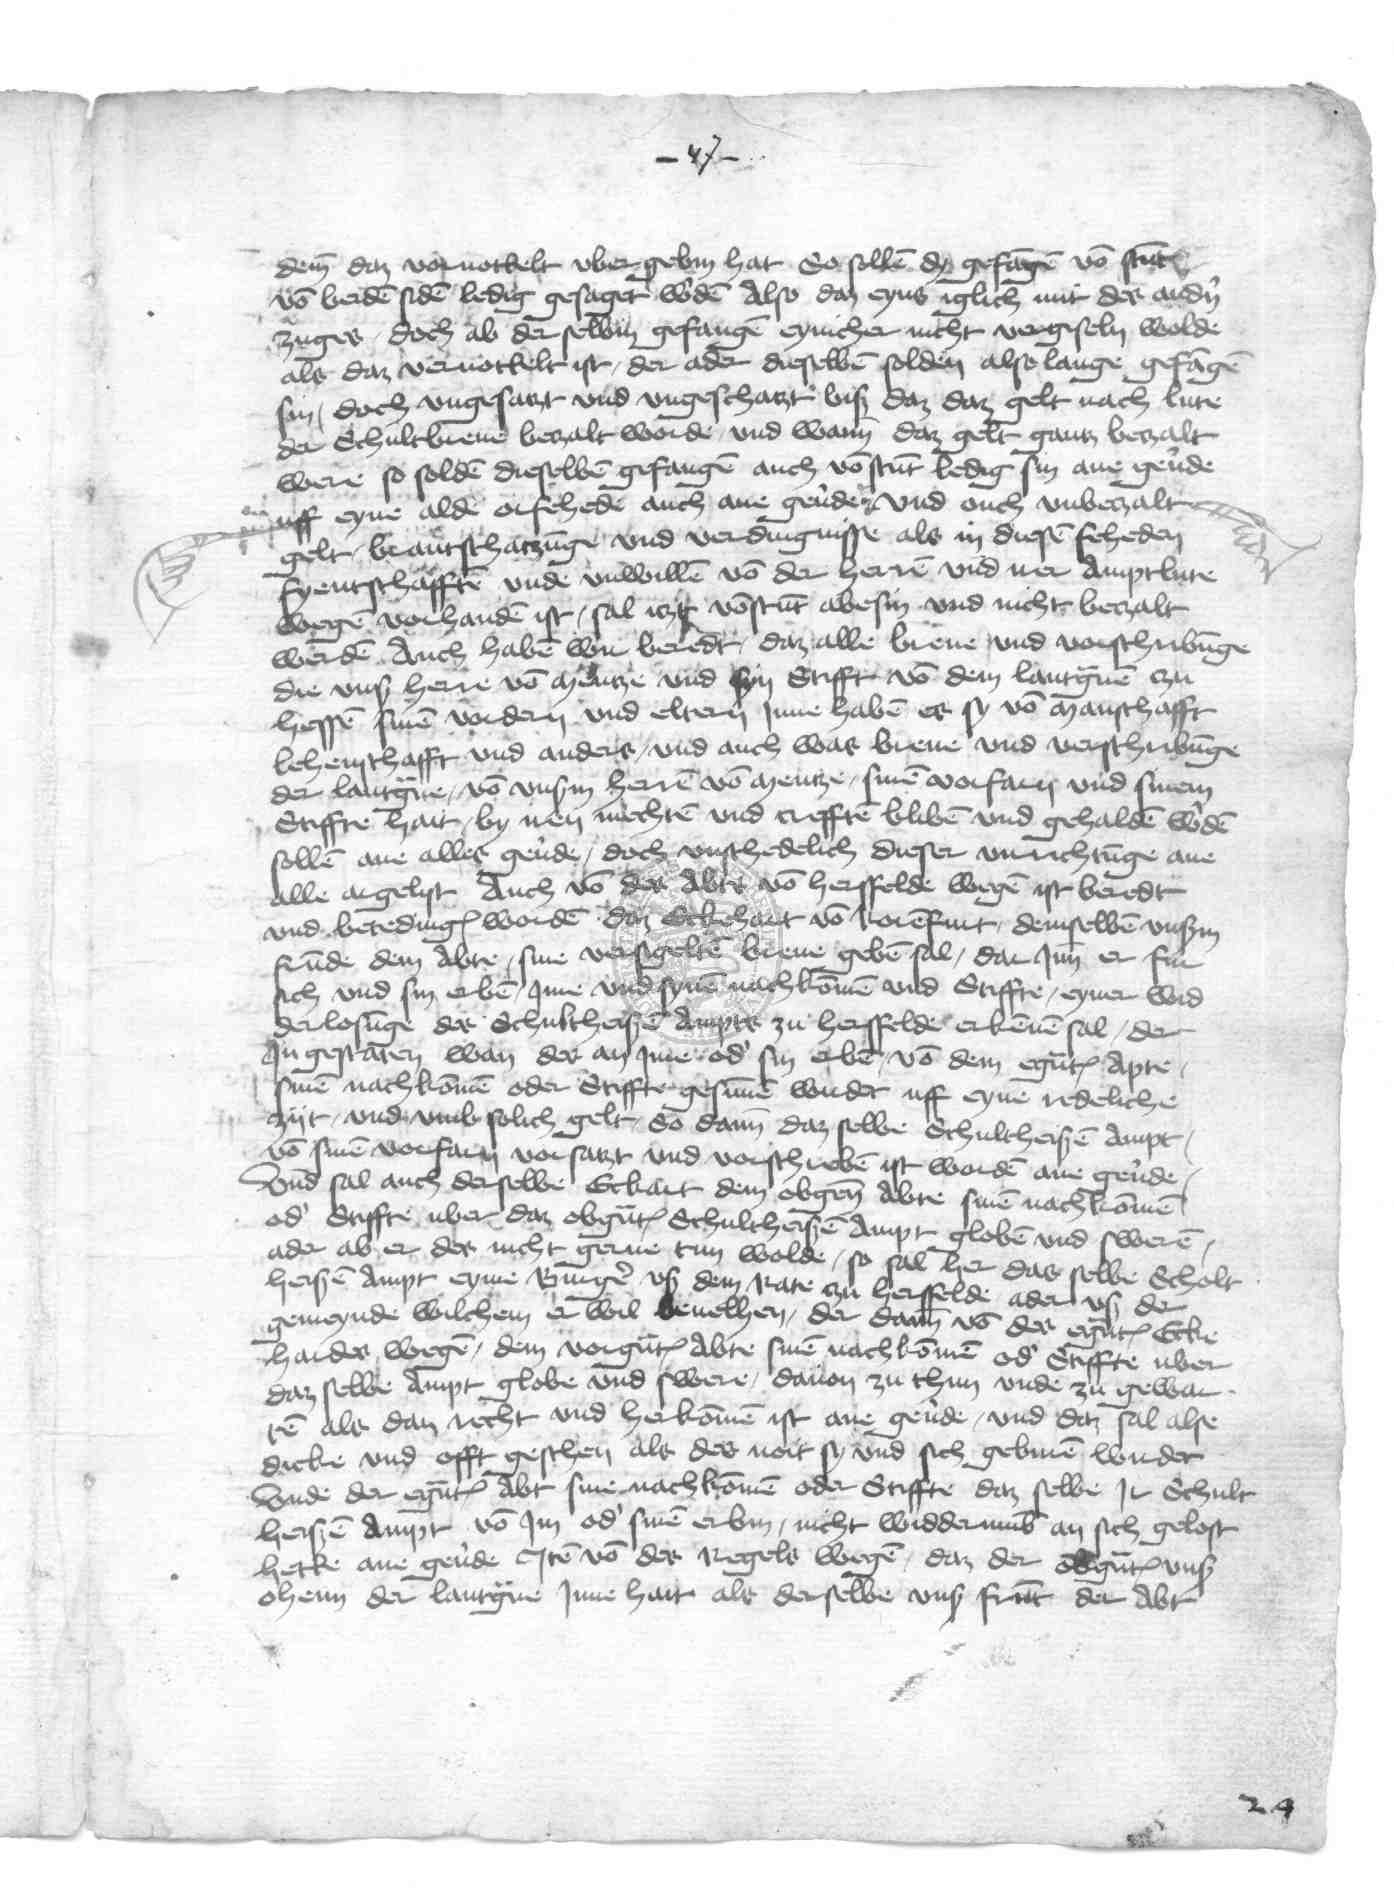 - 47 -
dem̄ daz vornottelt vbergebin hat So sollē dy gefangē vō stūt
vō beidē sidē ledig gesaget w'dē Also daz eyns iglich mit des andn̄
zuges / doch ab der selbin gefangē eynicher nicht vergiseln wolde
als daz vernottelt ist / der ader dieselbē solden also lange gefāgē
sin / doch vngesatzt vnd vngeschatzt biß daz daz gelt nach lute
der Schultbrieue beczalt worde / vnd wann̄ daz gelt gantz beczalt
were so soldē dieselbē gefangē auch vō stūt ledig sin ane geu'de
uff eyne alde orfehede auch ane geu'de / vnd ouch vnbeczalt
gelt / brantschatzūge vnd verdingnisse als in diesē feheden
fyentschafftē vnde vnwillē vō der herrē vnd irer Amptlute
wegē vorhandē ist / sal itzt vō stūt abesin vnd nicht beczalt
werdē Auch habē wir beredt / daz alle brieue vnd vorschribūge
die vnß herre vō Mentze vnd syn Stifft vō dem lantgūē zu
hessē sinē vordern vnd eltern Inne habē es sy vō manschafft
lehenschafft vnd anders / vnd auch was brieue vnd verschribūge
der lantgūe / vō vnßm herrē vō Mentze / sinē vorfarn vnd sinem
Stiffte hait / by iren mechtē vnd crefftē blibē vnd gehaldē w'dē
sollē ane alles geu'de / doch vnschedelich dieser vnrichtūge ane
alle argelist Auch vō des Abts vō hersfelde wegē ist beredt
vnd beteding wordē daz Eckehart vō Rorēfurt / demselbē vnßm
frūde dem Abte / sine versigeltē brieue gebē sal / dar Inn̄ er fur
sich vnd sin erbē / Ime vnd synē nachkōmē vnd Stiffte / eyner wid
derlosūge des Schultheißē Ampts zu hersfelde erkēnē sal / der
In gestaten wan des an Ime od' sin erbē / vō dem egūt Apte /
sinē nachkōmē oder Stiffte gesūnē wirdet uff eyne redeliche
zijt / vnd vmb solich gelt / So dann̄ daz selbe Schultheißē Ampt /
vō sinē vorfarn vorsatzt vnd vorschriebē ist wordē ane geu'de /
Vnd sal auch derselbe Eckart dem obgen̄ Abte sinē nachkōmē
od' Stiffte uber daz obgūt Schultheißē Ampt globē vnd swerē /
ader ab er des nicht gerne tun wolde / so sal her das selbe Scholt
heißē Ampt eyme Burgē' vß dem Rate zu hersfelde ader vß der
gemeynde wilchem er wil beuelhen / der dann̄ vō des egūt Ecke
hardes wegē / dem vorgūt Abte sinē nachkōmē od' Stiffte uber
daz selbe Ampt globe vnd swere / dauon zu thun vnde zu gewar
tē als daz recht vnd herkōmē ist ane geu'de / vnd daz sal alse
dicke vnd offt geschen als des noit sy vnd sich geburē wirdet
Vnde der egūt Abt sine nachkōmē oder Stiffte daz selbe Ir Schult
heißē Ampt vō Im od' sinē erbin / nicht widdervmb an sich gelost
hette ane geu'de Itē vō des Regels wegē / daz der obgūt vnß
oheim der lantgūe Inne hait als derselbe vnß frūt der Abt
24